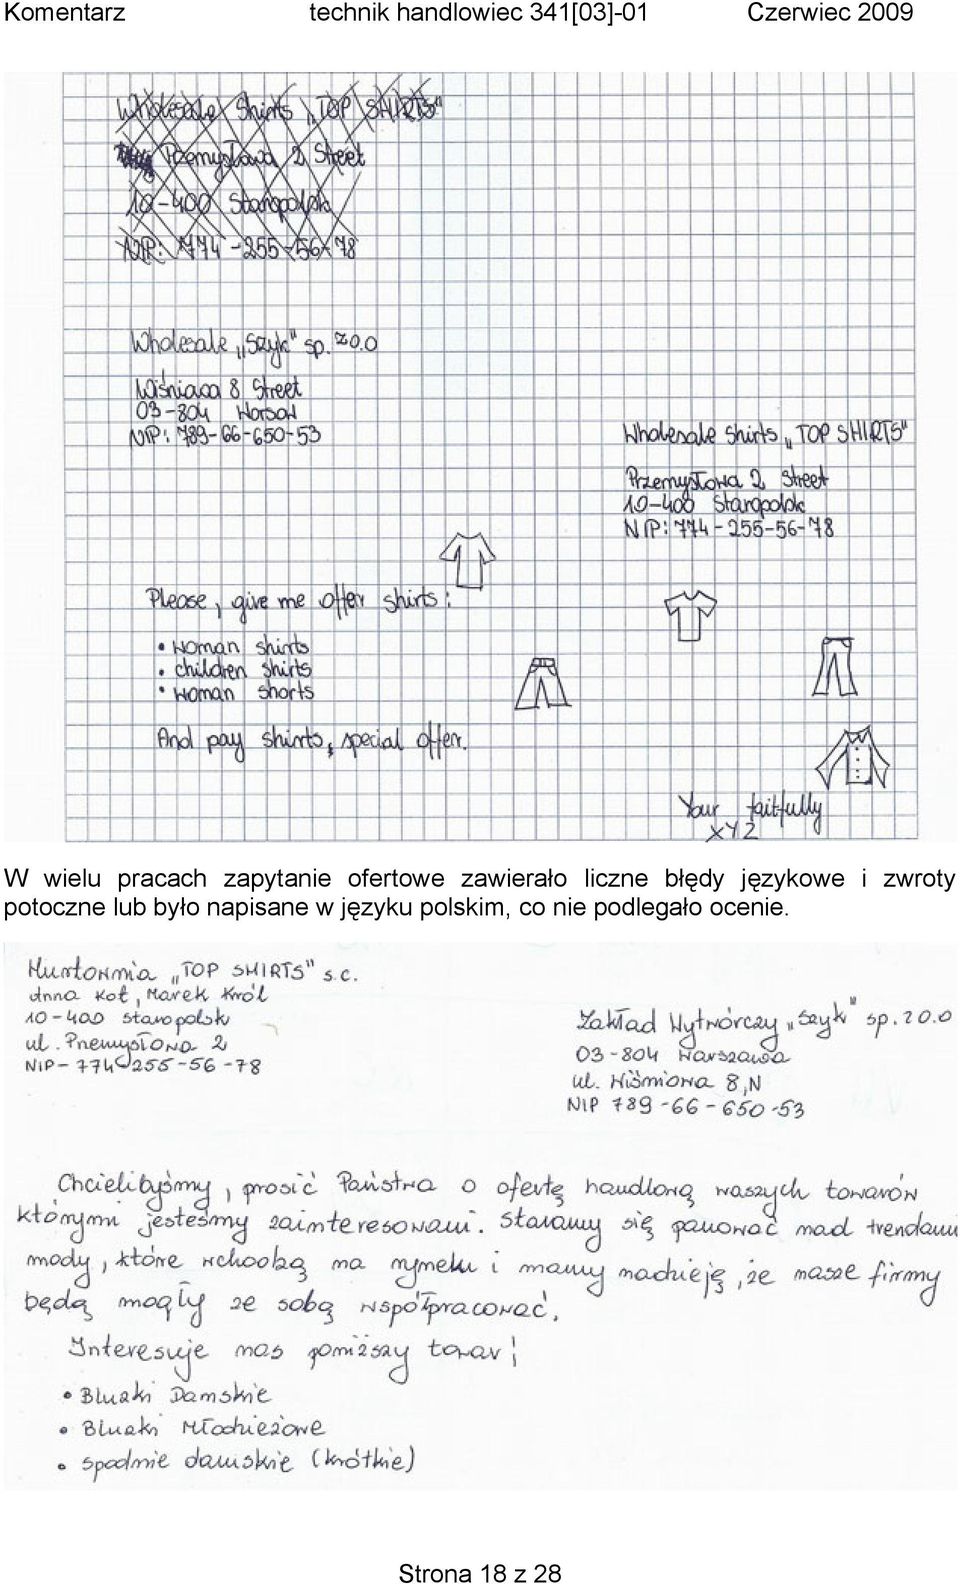 Komentarz technik handlowiec 341[03]-01 Czerwiec 2009
Wholesale Shirts „TOP SHIRTS"
Przemysłowa 2 Street
10-400 Staropolsk
NIP: 774-255-56-78
Wholesale „Szyk" sp. z o.o
Wiśniowa 8 Street
03-804 Worsow
NIP: 789-66-650-53
Wholesale Shirts „TOP SHIRTS"
Przemysłowa 2 Street
10-400 Staropolsk
NIP: 774-255-56-78
Please, give me offer shirts:
• woman shirts
• children shirts
• woman shorts
And pay shirts, special offer.
Your faitfully
XYZ
W wielu pracach zapytanie ofertowe zawierało liczne błędy językowe i zwroty
potoczne lub było napisane w języku polskim, co nie podlegało ocenie.
Hurtownia „TOP SHIRTS" s.c.
Anna Kot, Marek Król
10-400 Staropolsk
ul. Przemysłowa 2
NIP-774-255-56-78
Zakład Wytwórczy „Szyk" sp. z o.o
03-804 Warszawa
ul. Wiśniowa 8,N
NIP 789-66-650-53
Chcielibyśmy, prosić Państwa o ofertę handlową waszych towarów
którymi jesteśmy zainteresowani. Staramy się panować nad trendami
mody, które wchodzą na rynek i mamy nadzieję, że nasze firmy
będą mogły ze sobą współpracować.
Interesuje nas poniższy towar:
• Bluzki Damskie
• Bluzki Młodzieżowe
• spodnie damskie (krótkie)
Strona 18 z 28